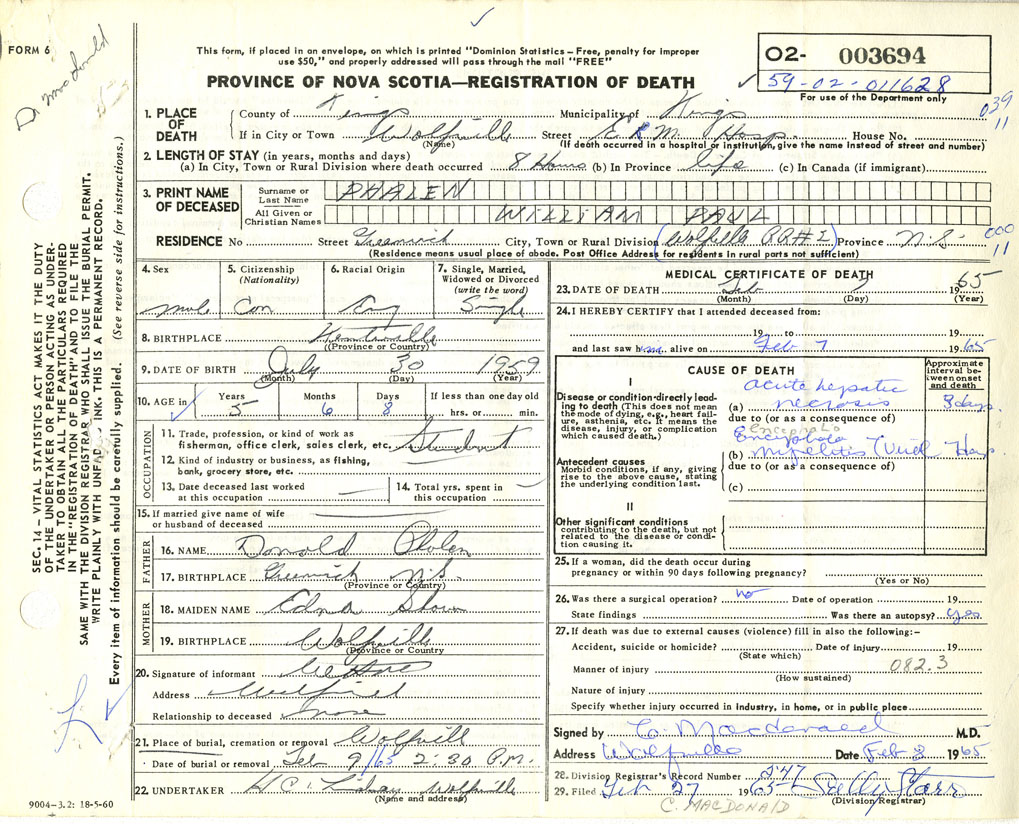 FORM 6
Dr Macdonald
This form, if placed in an envelope, on which is printed "Dominion Statistics – Free, penalty for improper
use $50," and properly addressed will pass through the mail "FREE"
PROVINCE OF NOVA SCOTIA—REGISTRATION OF DEATH
O2- 003694
59-02-011628
For use of the Department only
039
11
1. PLACE OF DEATH
County of Kings Municipality of Kings
If in City or Town Wolfville Street E K M Hosp. House No.
(Name) (If death occurred in a hospital or institution, give the name instead of street and number)
2. LENGTH OF STAY (in years, months and days)
(a) In City, Town or Rural Division where death occurred 8 Hours (b) In Province life (c) In Canada (if immigrant)
3. PRINT NAME OF DECEASED
Surname or Last Name PHALEN
All Given or Christian Names WILLIAM PAUL
RESIDENCE No Street Greenwich City, Town or Rural Division (Wolfville RR#2) Province N.S.
000
11
(Residence means usual place of abode. Post Office Address for residents in rural parts not sufficient)
4. Sex male
5. Citizenship (Nationality) Can
6. Racial Origin Eng
7. Single, Married, Widowed or Divorced (write the word) Single
8. BIRTHPLACE Kentville
(Province or Country)
9. DATE OF BIRTH July 30 1959
(Month) (Day) (Year)
10. AGE in Years 5 Months 6 Days 8 If less than one day old hrs. or min.
OCCUPATION
11. Trade, profession, or kind of work as fisherman, office clerk, sales clerk, etc. Student
12. Kind of industry or business, as fishing, bank, grocery store, etc.
13. Date deceased last worked at this occupation
14. Total yrs. spent in this occupation
15. If married give name of wife or husband of deceased
FATHER
16. NAME Donald Phalen
17. BIRTHPLACE Greenwich N.S.
(Province or Country)
MOTHER
18. MAIDEN NAME Edna Shaw
19. BIRTHPLACE Wolfville
(Province or Country
20. Signature of informant
Address Wolfville
Relationship to deceased none
21. Place of burial, cremation or removal Wolfville
Date of burial or removal Feb 9/65 2:30 P.M.
22. UNDERTAKER Wolfville
(Name and address)
9004-3.2: 18-5-60
MEDICAL CERTIFICATE OF DEATH
23. DATE OF DEATH Feb 7 1965
(Month) (Day) (Year)
24. I HEREBY CERTIFY that I attended deceased from:
19 to 19
and last saw him alive on Feb 7 1965
CAUSE OF DEATH
Approximate interval between onset and death
I
Disease or condition directly leading to death (This does not mean the mode of dying, e.g., heart failure, asthenia, etc. It means the disease, injury, or complication which caused death.)
acute hepatic
(a) necrosis 3 days
due to (or as a consequence of)
Encephalo
Antecedent causes
Morbid conditions, if any, giving rise to the above cause, stating the underlying condition last.
(b) myelitis (Viral
due to (or as a consequence of)
(c)
II
Other significant conditions
contributing to the death, but not related to the disease or condition causing it.
25. If a woman, did the death occur during pregnancy or within 90 days following pregnancy?
(Yes or No)
26. Was there a surgical operation? no Date of operation 19
State findings Was there an autopsy? yes
27. If death was due to external causes (violence) fill in also the following:–
Accident, suicide or homicide? Date of injury 19
(State which)
Manner of injury 082.3
(How sustained)
Nature of injury
Specify whether injury occurred in industry, in home, or in public place
Signed by C. Macdonald M.D.
Address Wolfville Date Feb 8 1965
28. Division Registrar's Record Number 247
29. Filed Feb 27 1965 Sally Starr
C. MACDONALD (Division Registrar)
SEC. 14 – VITAL STATISTICS ACT MAKES IT THE DUTY
OF THE UNDERTAKER OR PERSON ACTING AS UNDER-
TAKER TO OBTAIN ALL THE PARTICULARS REQUIRED
IN THE "REGISTRATION OF DEATH" AND TO FILE THE
SAME WITH THE DIVISION REGISTRAR WHO SHALL ISSUE THE BURIAL PERMIT.
WRITE PLAINLY WITH UNFADING INK. THIS IS A PERMANENT RECORD.
Every item of information should be carefully supplied. (See reverse side for instructions.)